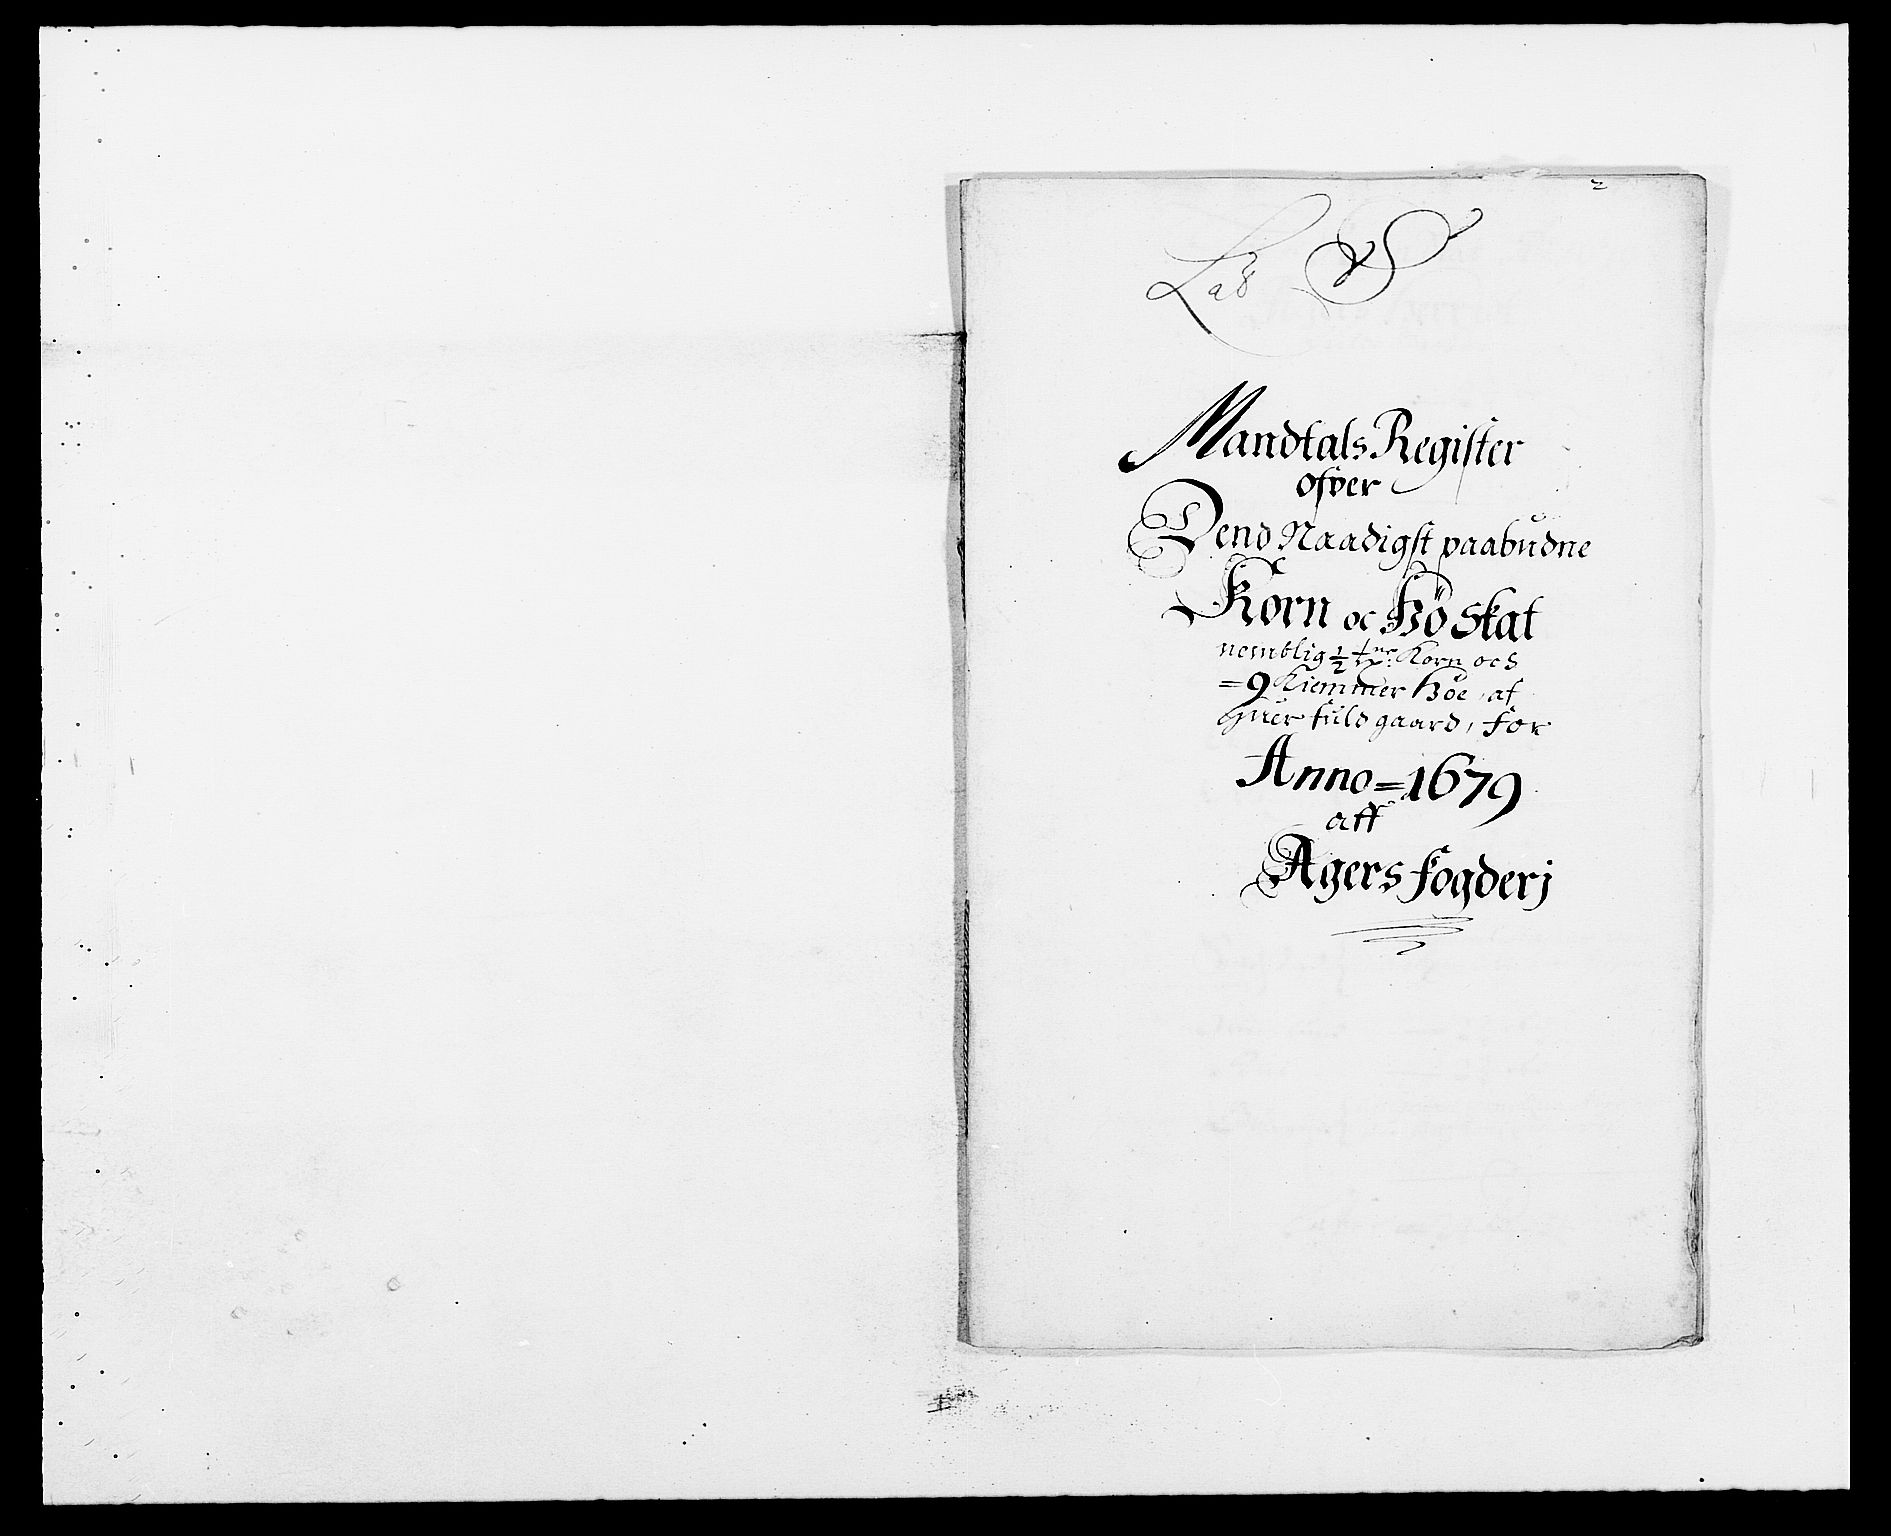 2
Mandtals Register
ofver
Dend Naadigst paabudne
Korn oc Höskat
nemblig 1/2 tne: Korn och
=9 Kiemmer Höe, af
huer fuld gaard, for
Anno=1679
aff
Agers fogderj